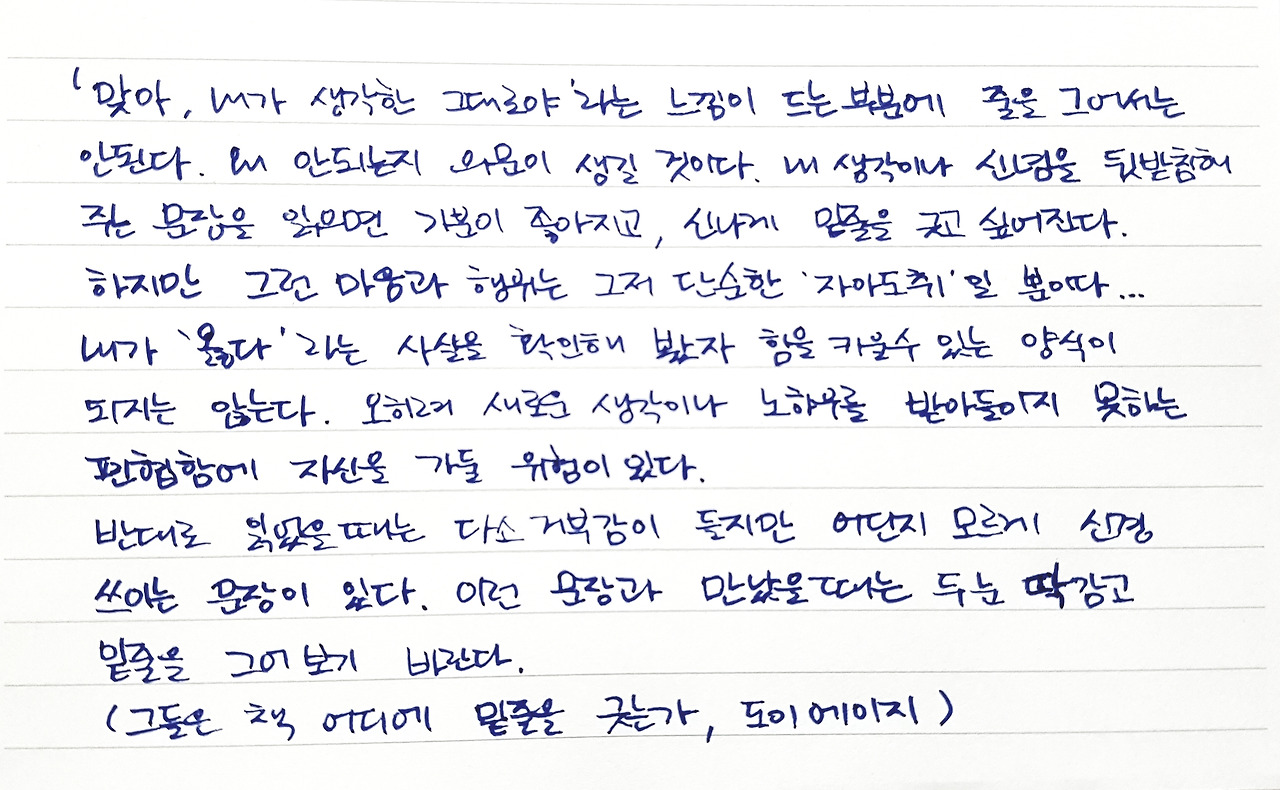 '맞아, 내가 생각한 그대로야'라는 느낌이 드는 부분에 줄을 그어서는
안된다. 왜 안되는지 의문이 생길 것이다. 내 생각이나 신념을 뒷받침해
주는 문장을 읽으면 기분이 좋아지고, 신나게 밑줄을 긋고 싶어진다.
하지만 그런 마음과 행위는 그저 단순한 '자아도취'일 뿐이다...
내가 '옳다'라는 사실을 확인해 봤자 힘을 키울수 있는 양식이
되지는 않는다. 오히려 새로운 생각이나 노하우를 받아들이지 못하는
편협함에 자신을 가둘 위험이 있다.
반대로 읽었을때는 다소 거부감이 들지만 어딘지 모르게 신경
쓰이는 문장이 있다. 이런 문장과 만났을때는 두눈 딱감고
밑줄을 그어보기 바란다.
(그들은 책 어디에 밑줄을 긋는가, 도이에이지)